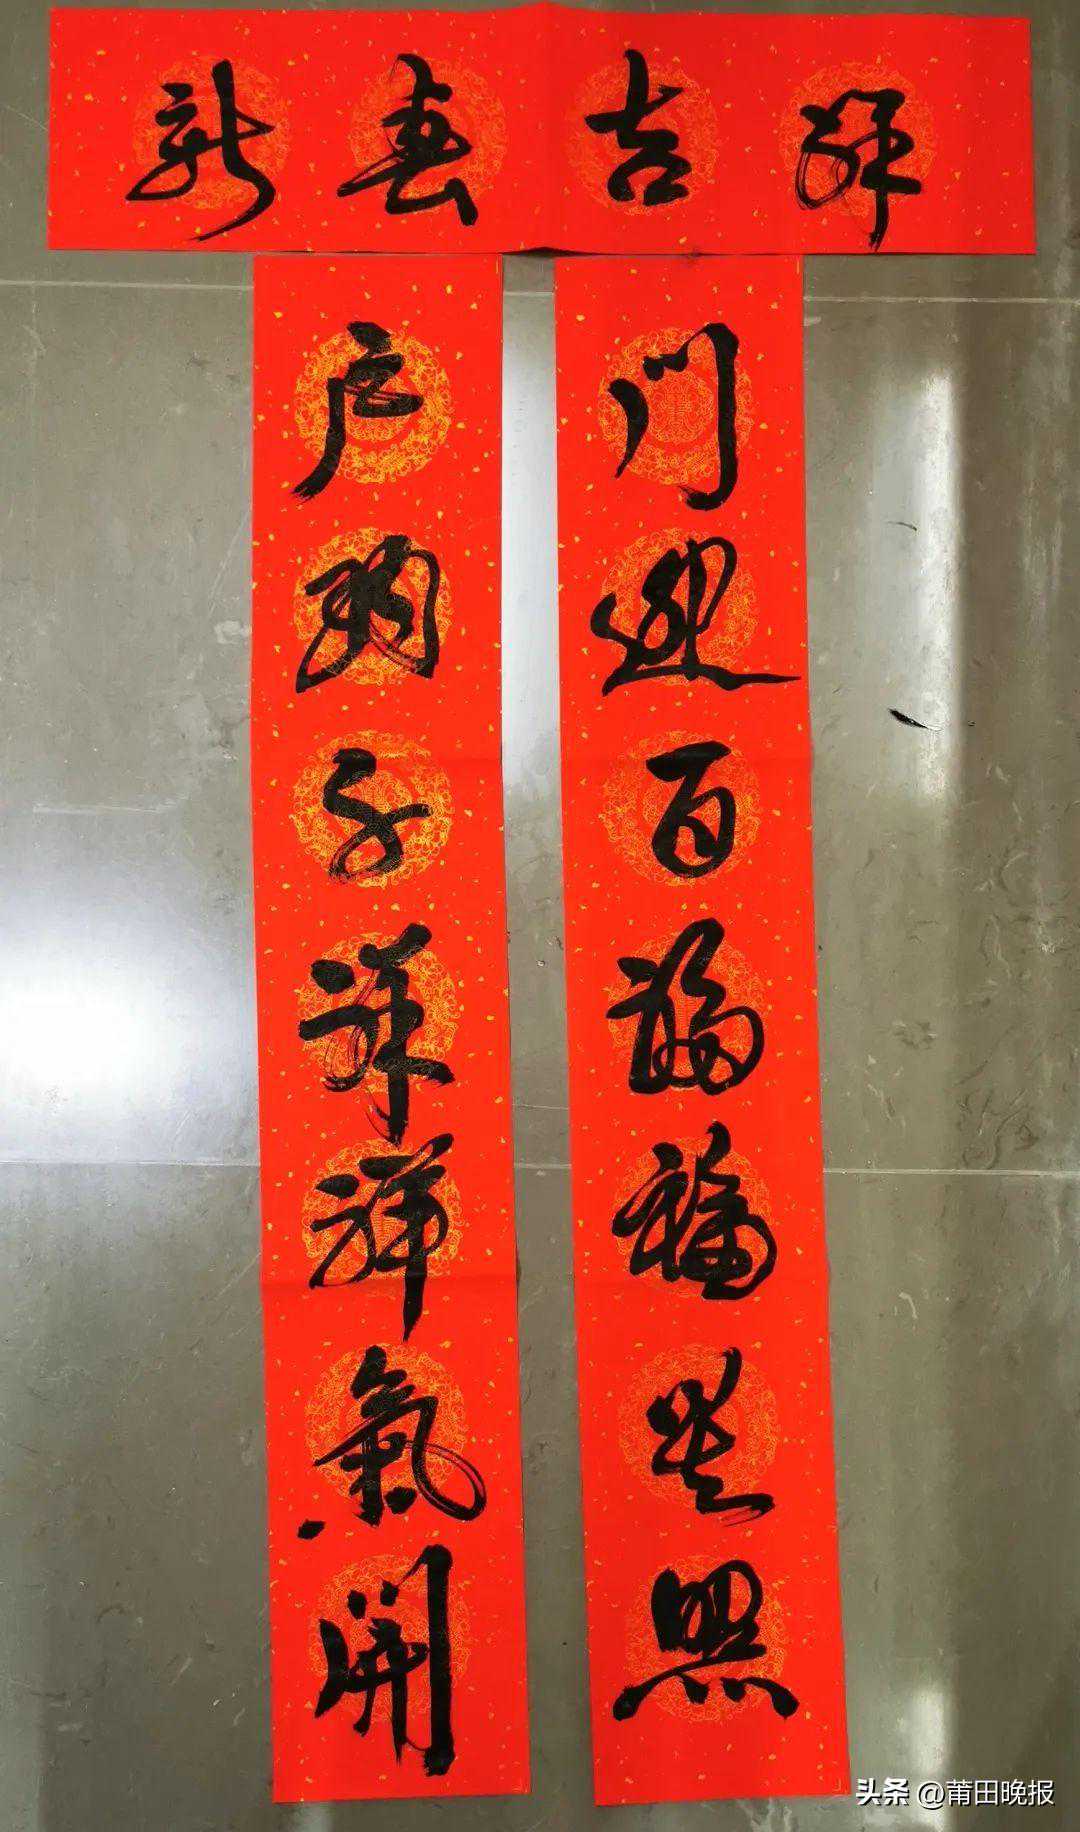 新春吉祥
门迎百福福星照
户纳千祥祥氣開
头条 @莆田晚报